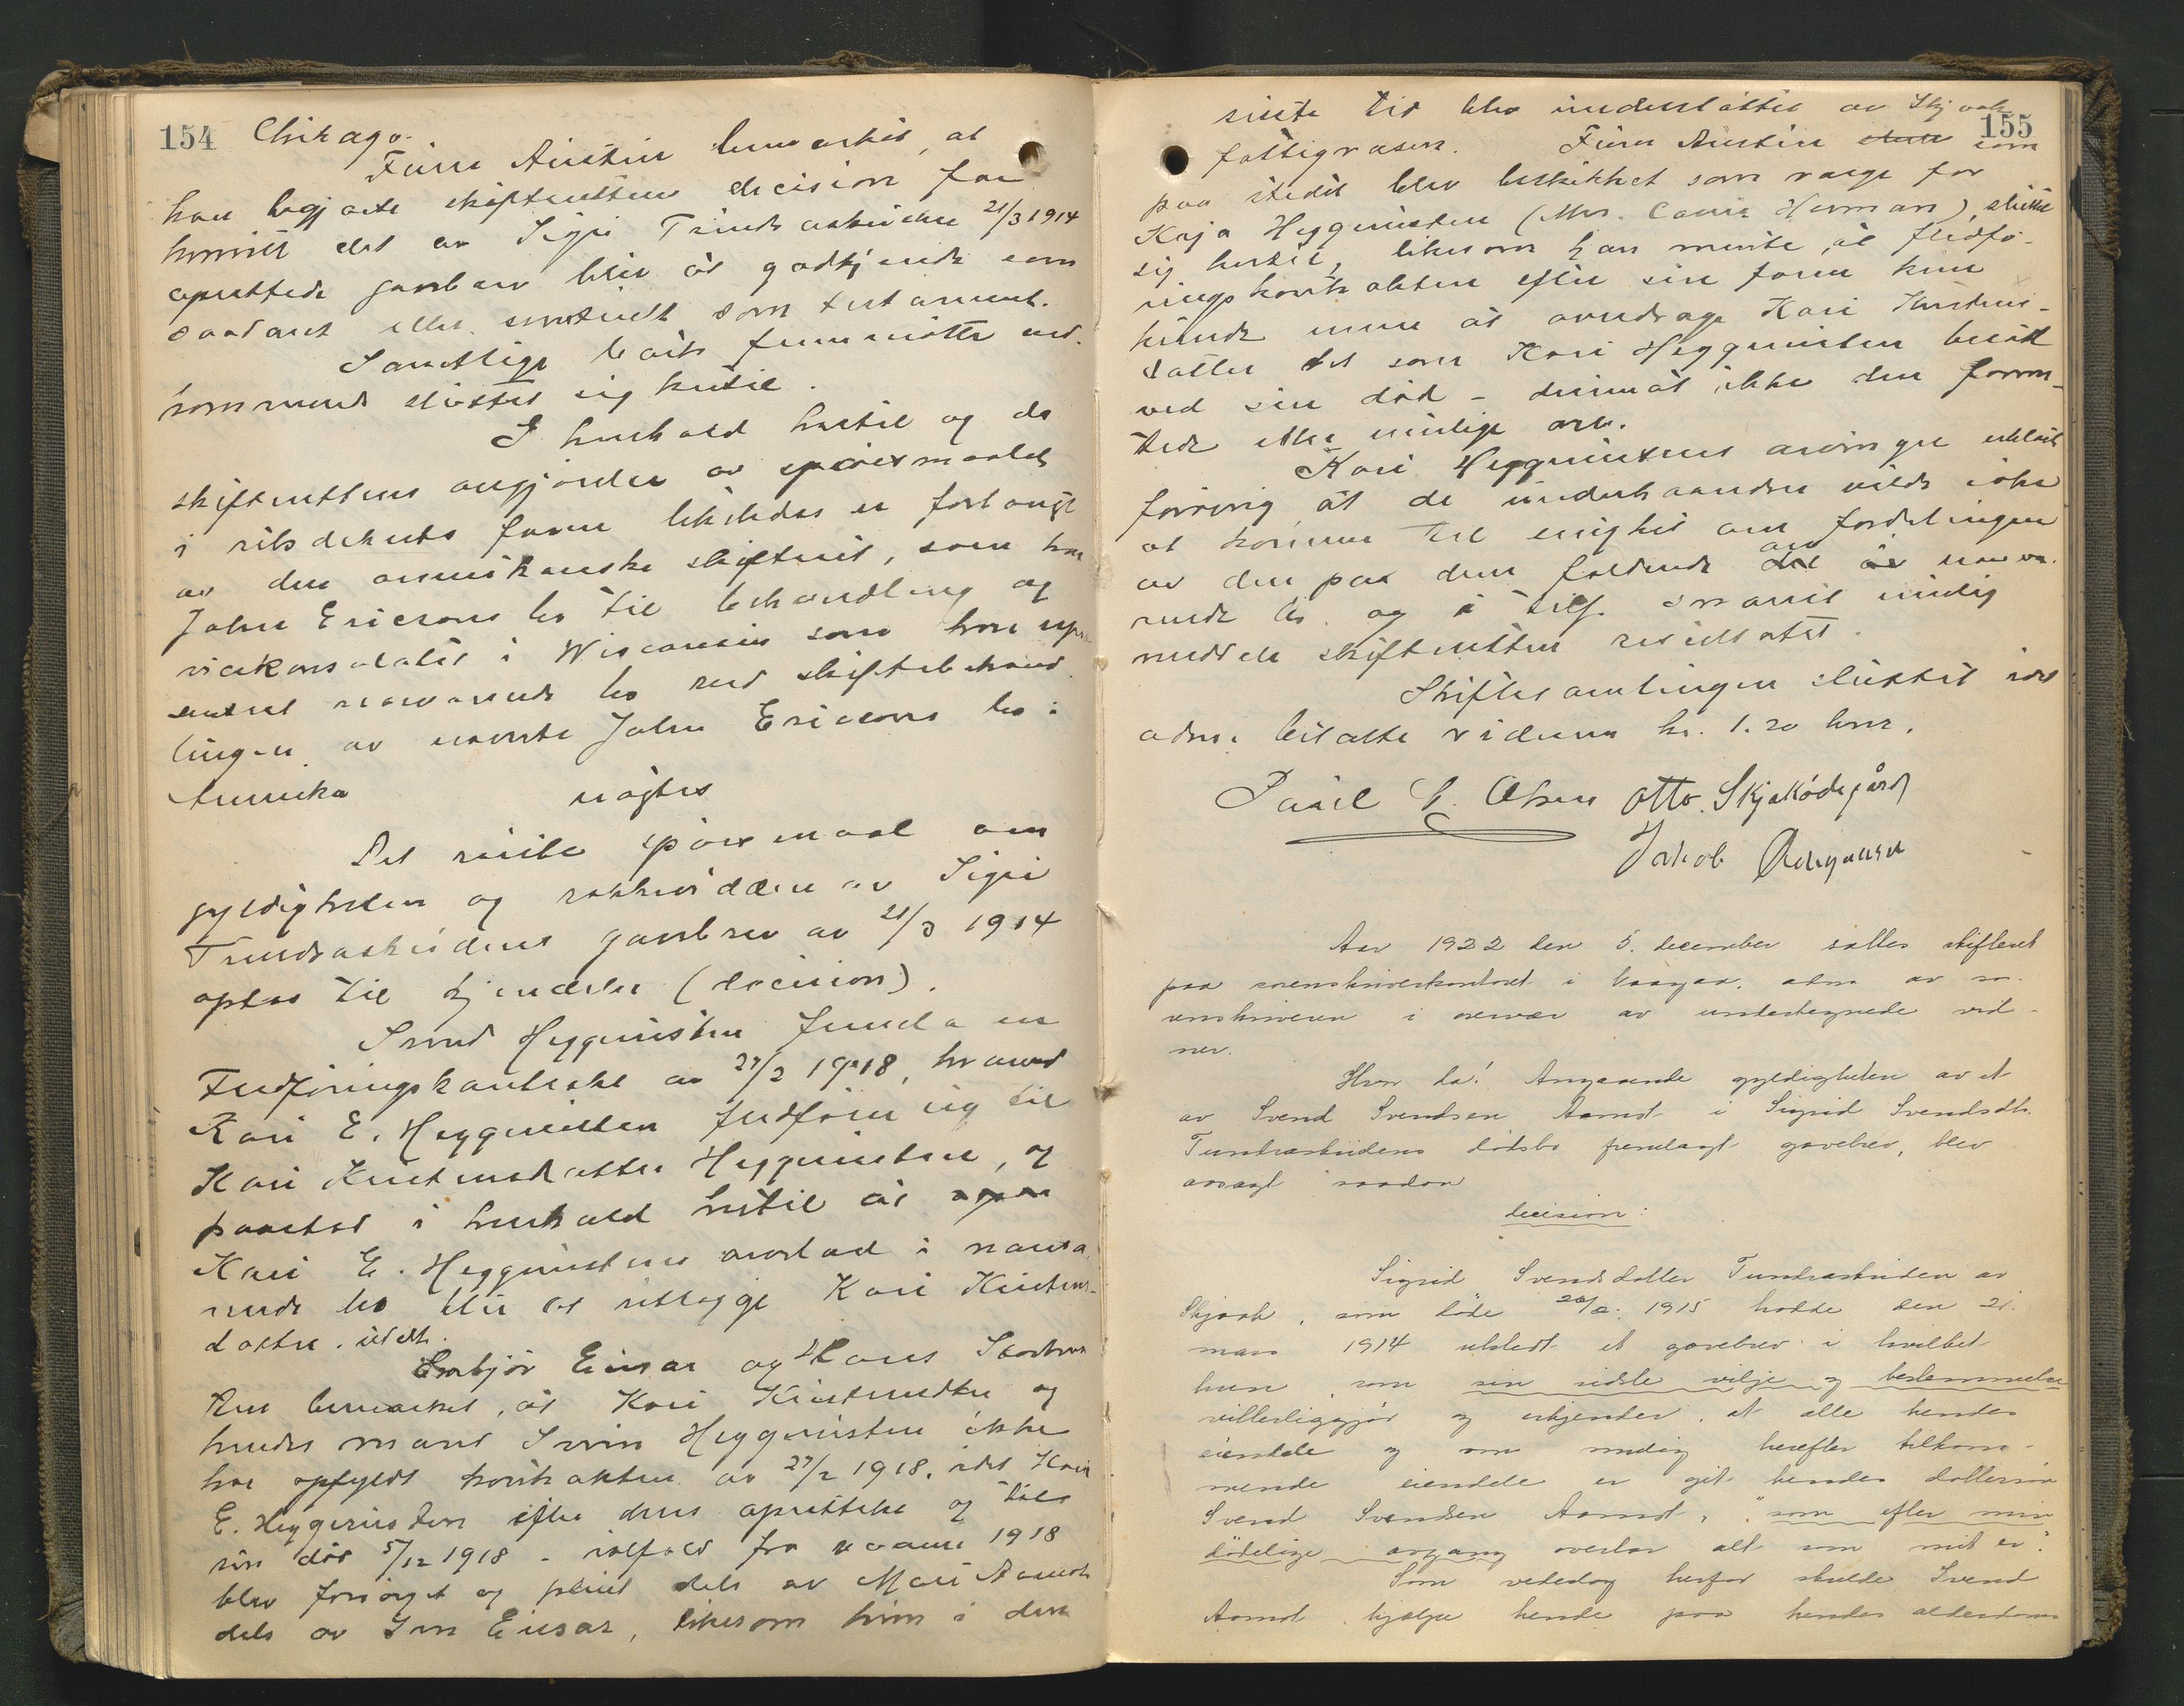 154
Chikago.
Finn Austin bemerket, at
han begjærte skifterettens decision for
hvorvidt det av Sigri Tundraskriden 21/3 1914
oprettede gavebrev blir at godkjende som
saadant eller eventuelt som testament.
Samtlige de øvrige fremmøtte ved-
kommende sluttet sig hertil.
I henhold hertil og da
skifterettens avgjørelse av spørsmaalet
i retsdekrets form likeledes er forlangt
av den amerikanske skifteret, som har
John Ericsons bo til behandling og
vicekonsulatet i Wisconsin som har repræ-
sentert nærværende bo ved skiftebehand-
lingen av nævnte John Ericsons bo i
Amerika
vedtes
Det reiste spørsmaal om
gyldigheten og rækkevidden av Sigri
Tundraskridens gavebrev av 21/3 1914
optas til kjendelse (decision).
Svend Heggeristen fremla en
Fledføringskontrakt av 27/2 1918, hvorved
Kari E. Heggeristen fledfører sig til
Kari Kristensdatter Heggeristen, og
paastod i henhold hertil at
Kari E. Heggeristens arvelod i nærvæ-
rende bo blir at utlægge Kari Kristens-
datter. utelt.
Embjør Einar og Hans
bemerket, at Kari Kristensdtr og
hendes mand Heggeristen ikke
har opfyldt kontrakten av 27/2 1918, idet Kari
E. Heggeristen efter dens oprettelse og til
sin død 5/12 1918 - ialfald fra 1918
blev forsørget og pleiet dels av Mari Aamot
dels av Einar, likesom hun i den
155
siste tid blev understøttet av Skjaak
fattigvæsen. Finn Austin som
paa stedet blev beskikket som værge for
Kaja Heggeristen (Mrs. Carrie Herman), sluttet
sig hertil, likesom han mente, at fledfø-
ringskontrakten efter sin form kun
kunde mene at overdrage Kari Kristens-
datter det som Kari Heggeristen besatt
ved sin død - derimot ikke den forven-
tede eller mulige arv.
Kari Heggeristens arvinger erklærte
forøvrig at de underhaanden vilde søke
at komme til enighet om fordelingen
av den paa dem faldende del av nærvæ-
rende bo og i tilf. snarest mulig
meddele skifteretten resultatet.
Skiftesamlingen sluttet idet
adm. tilatte vidnene kr. 1.20 hver.
Paul L. Olsen Otto Skjakødegård
Jakob Ødegaard
Aar 1922 den 5. december sattes skifteret
paa sorenskriverkontoret i Vaagaa. adm av so-
renskriveren i overvær av undertegnede vid-
ner.
Hvor da! Angaaende gyldigheten av et
av Svend Svendsen Aamot i Sigrid Svendsdtr.
Tundraskridens dødsbo fremlagt gavebrev, blev
avsagt saadan
decision:
Sigrid Svendsdatter Tundraskriden av
Skjaak, som døde 20/2. 1915 hadde den 21.
mars 1914 utstedt et gavebrev i hvilket
hun, som sin sidste vilje og bestemmelse
vitterliggjør og erkjender, at alle hendes
eiendele og om mulig herefter tilkom-
mende eiendele er git hendes dattersøn
Svend Svendsen Aamot, "som efter min
dødelige avgang overtar alt som mit er".
Som vederlag herfor skulde Svend
Aamot hjælpe hende paa hendes alderdom